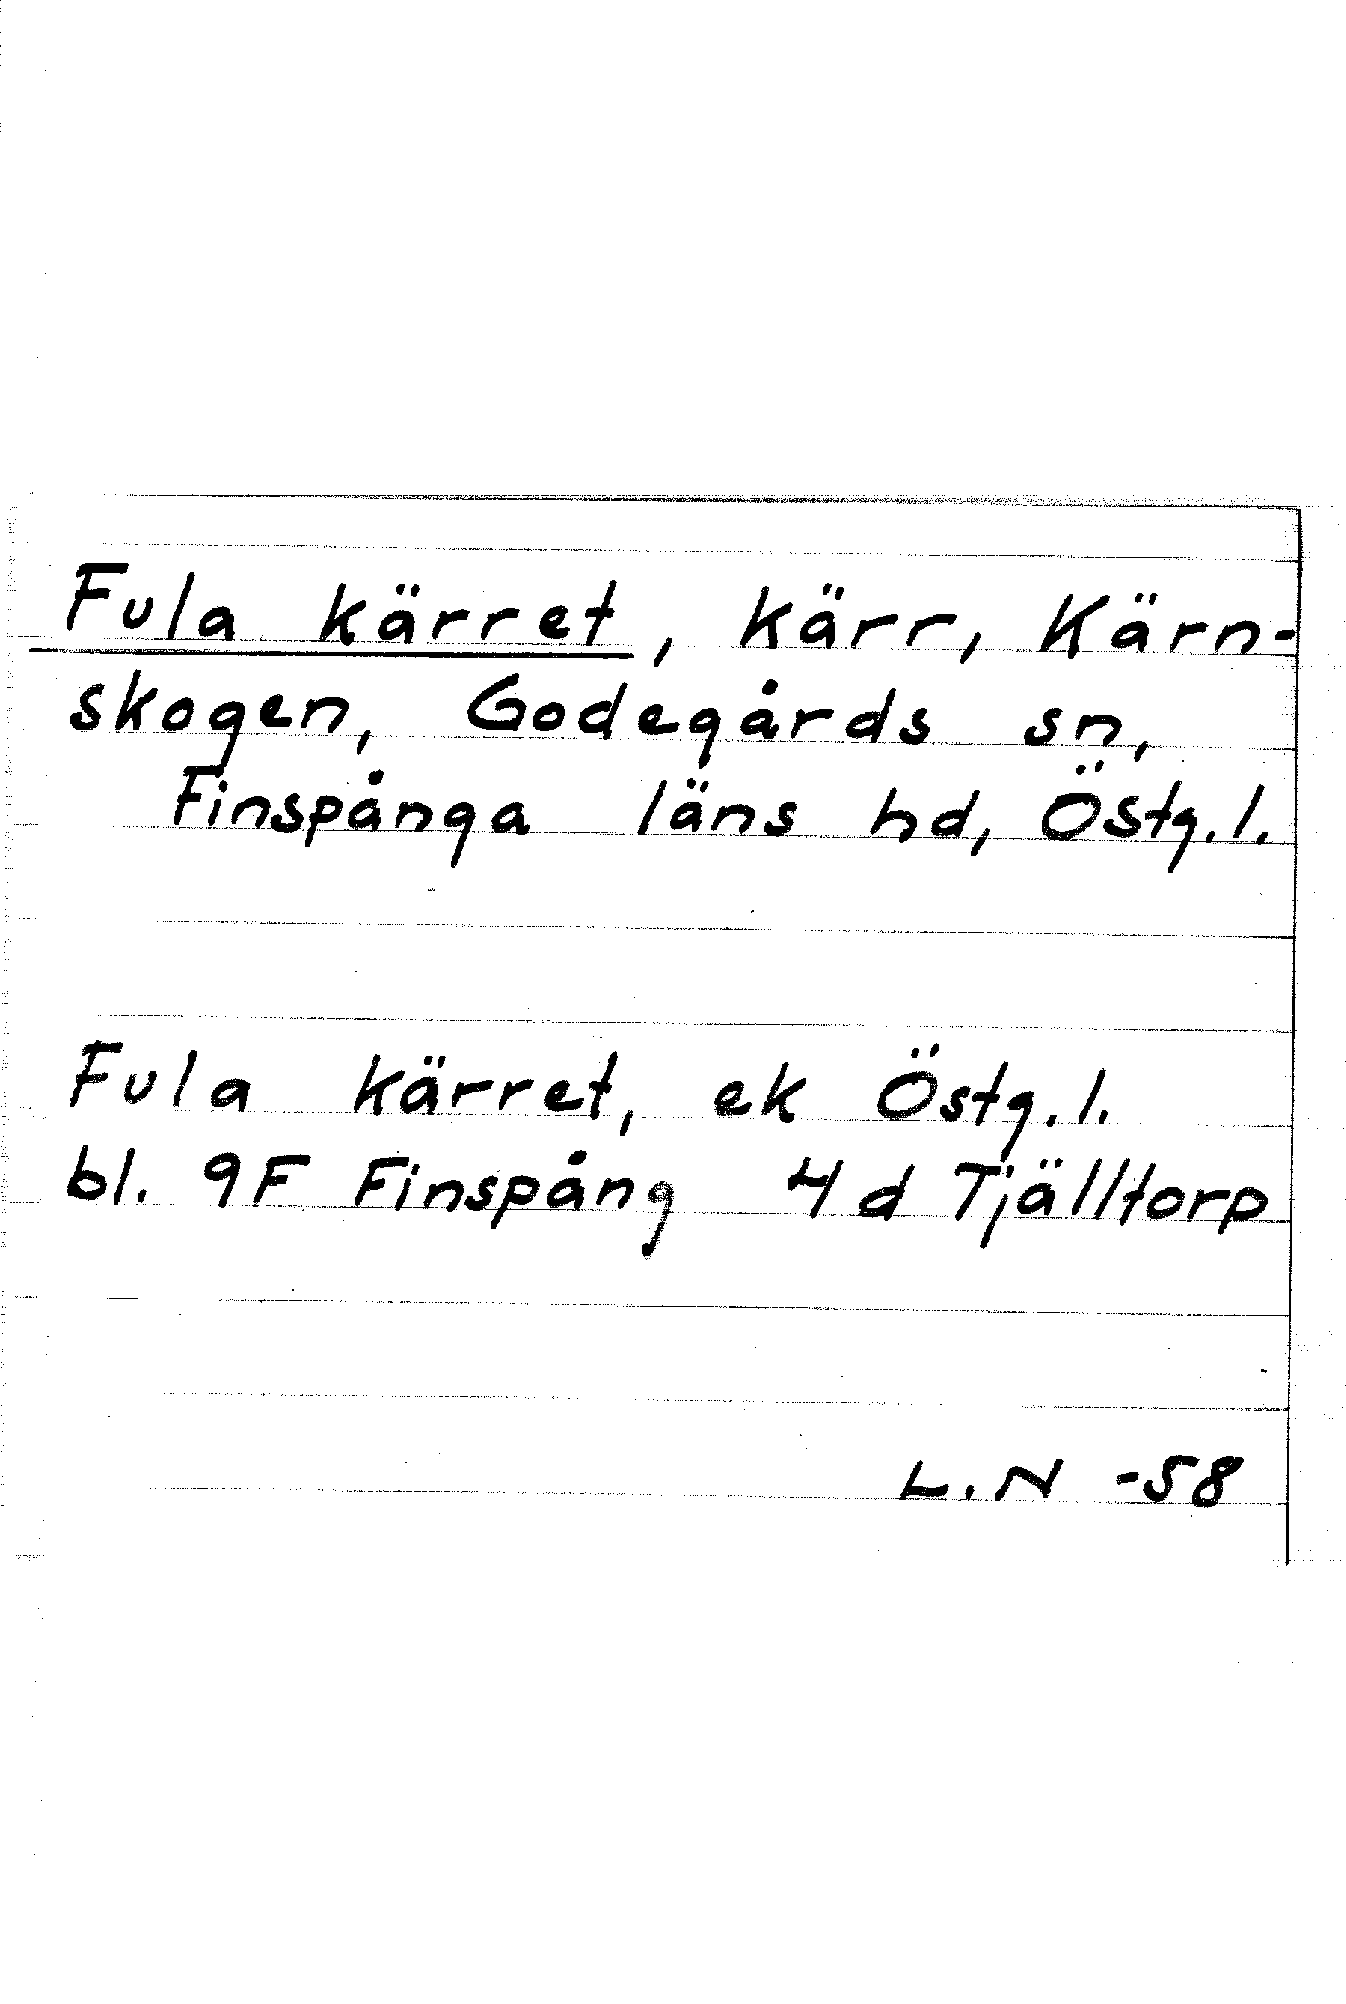 Fula kärret, kärr, Kärn-
skogen, Godegårds sn,
Finspånga läns hd, Östg.l.
Fula kärret, ek Östg.l.
bl. 9F Finspång 4d Tjälltorp
L.N -58